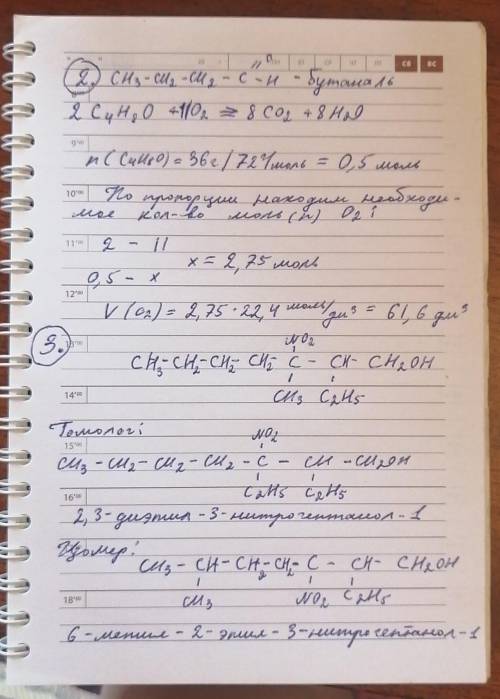 СБ ВС
O
2. CH3-CH2-CH2-C-H - Бутаналь
2 C4H8O + 11O2 = 8CO2 + 8H2O
9'00
n(C4H8O) = 36г/72г/моль = 0,5 моль
10'00 По пропорции находим необходи-
мое кол-во моль(n) O2:
11'00 2 - 11
x = 2,75 моль
0,5 - x
12'00
V(O2) = 2,75·22,4 моль/дм3 = 61,6 дм3
3. 13'00 NO2
CH3-CH2-CH2-CH2-C-CH-CH2OH
14'00 CH3 C2H5
Гомолог:
15'00 NO2
CH3-CH2-CH2-CH2-C-CH-CH2OH
16'00 C2H5 C2H5
2,3-диэтил-3-нитрогептанол-1
Изомер:
CH3-CH-CH2-CH2-C-CH-CH2OH
18'00 CH3 NO2 C2H5
6-метил-2-этил-3-нитрогептанол-1